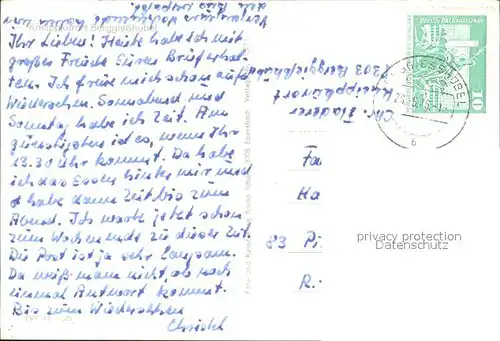 Kneippkurort Berggießhübel
Ihr Lieben! Heute habe ich mit
großer Freude Euren Brief erhal-
ten. Ich freue mich schon aufs
Wiedersehen. Sonnabend und
Sonntag habe ich Zeit. Am
günstigsten ist es, wenn Ihr
13.30 Uhr kommt. Da habe
ich das Essen hinter mir und
habe dann Zeit bis zum
Abend. Ich warte jetzt schon
zum Wochenende zu dieser Zeit.
Die Post ist ja sehr langsam.
Da weiß man nicht, ob noch
einmal Antwort kommt.
Bis zum Wiedersehen
Christel
Chr.
Kneippkurort
Berggießhübel
Fa
Ha
83 Pi
R.
10
privacy protection
Datenschutz